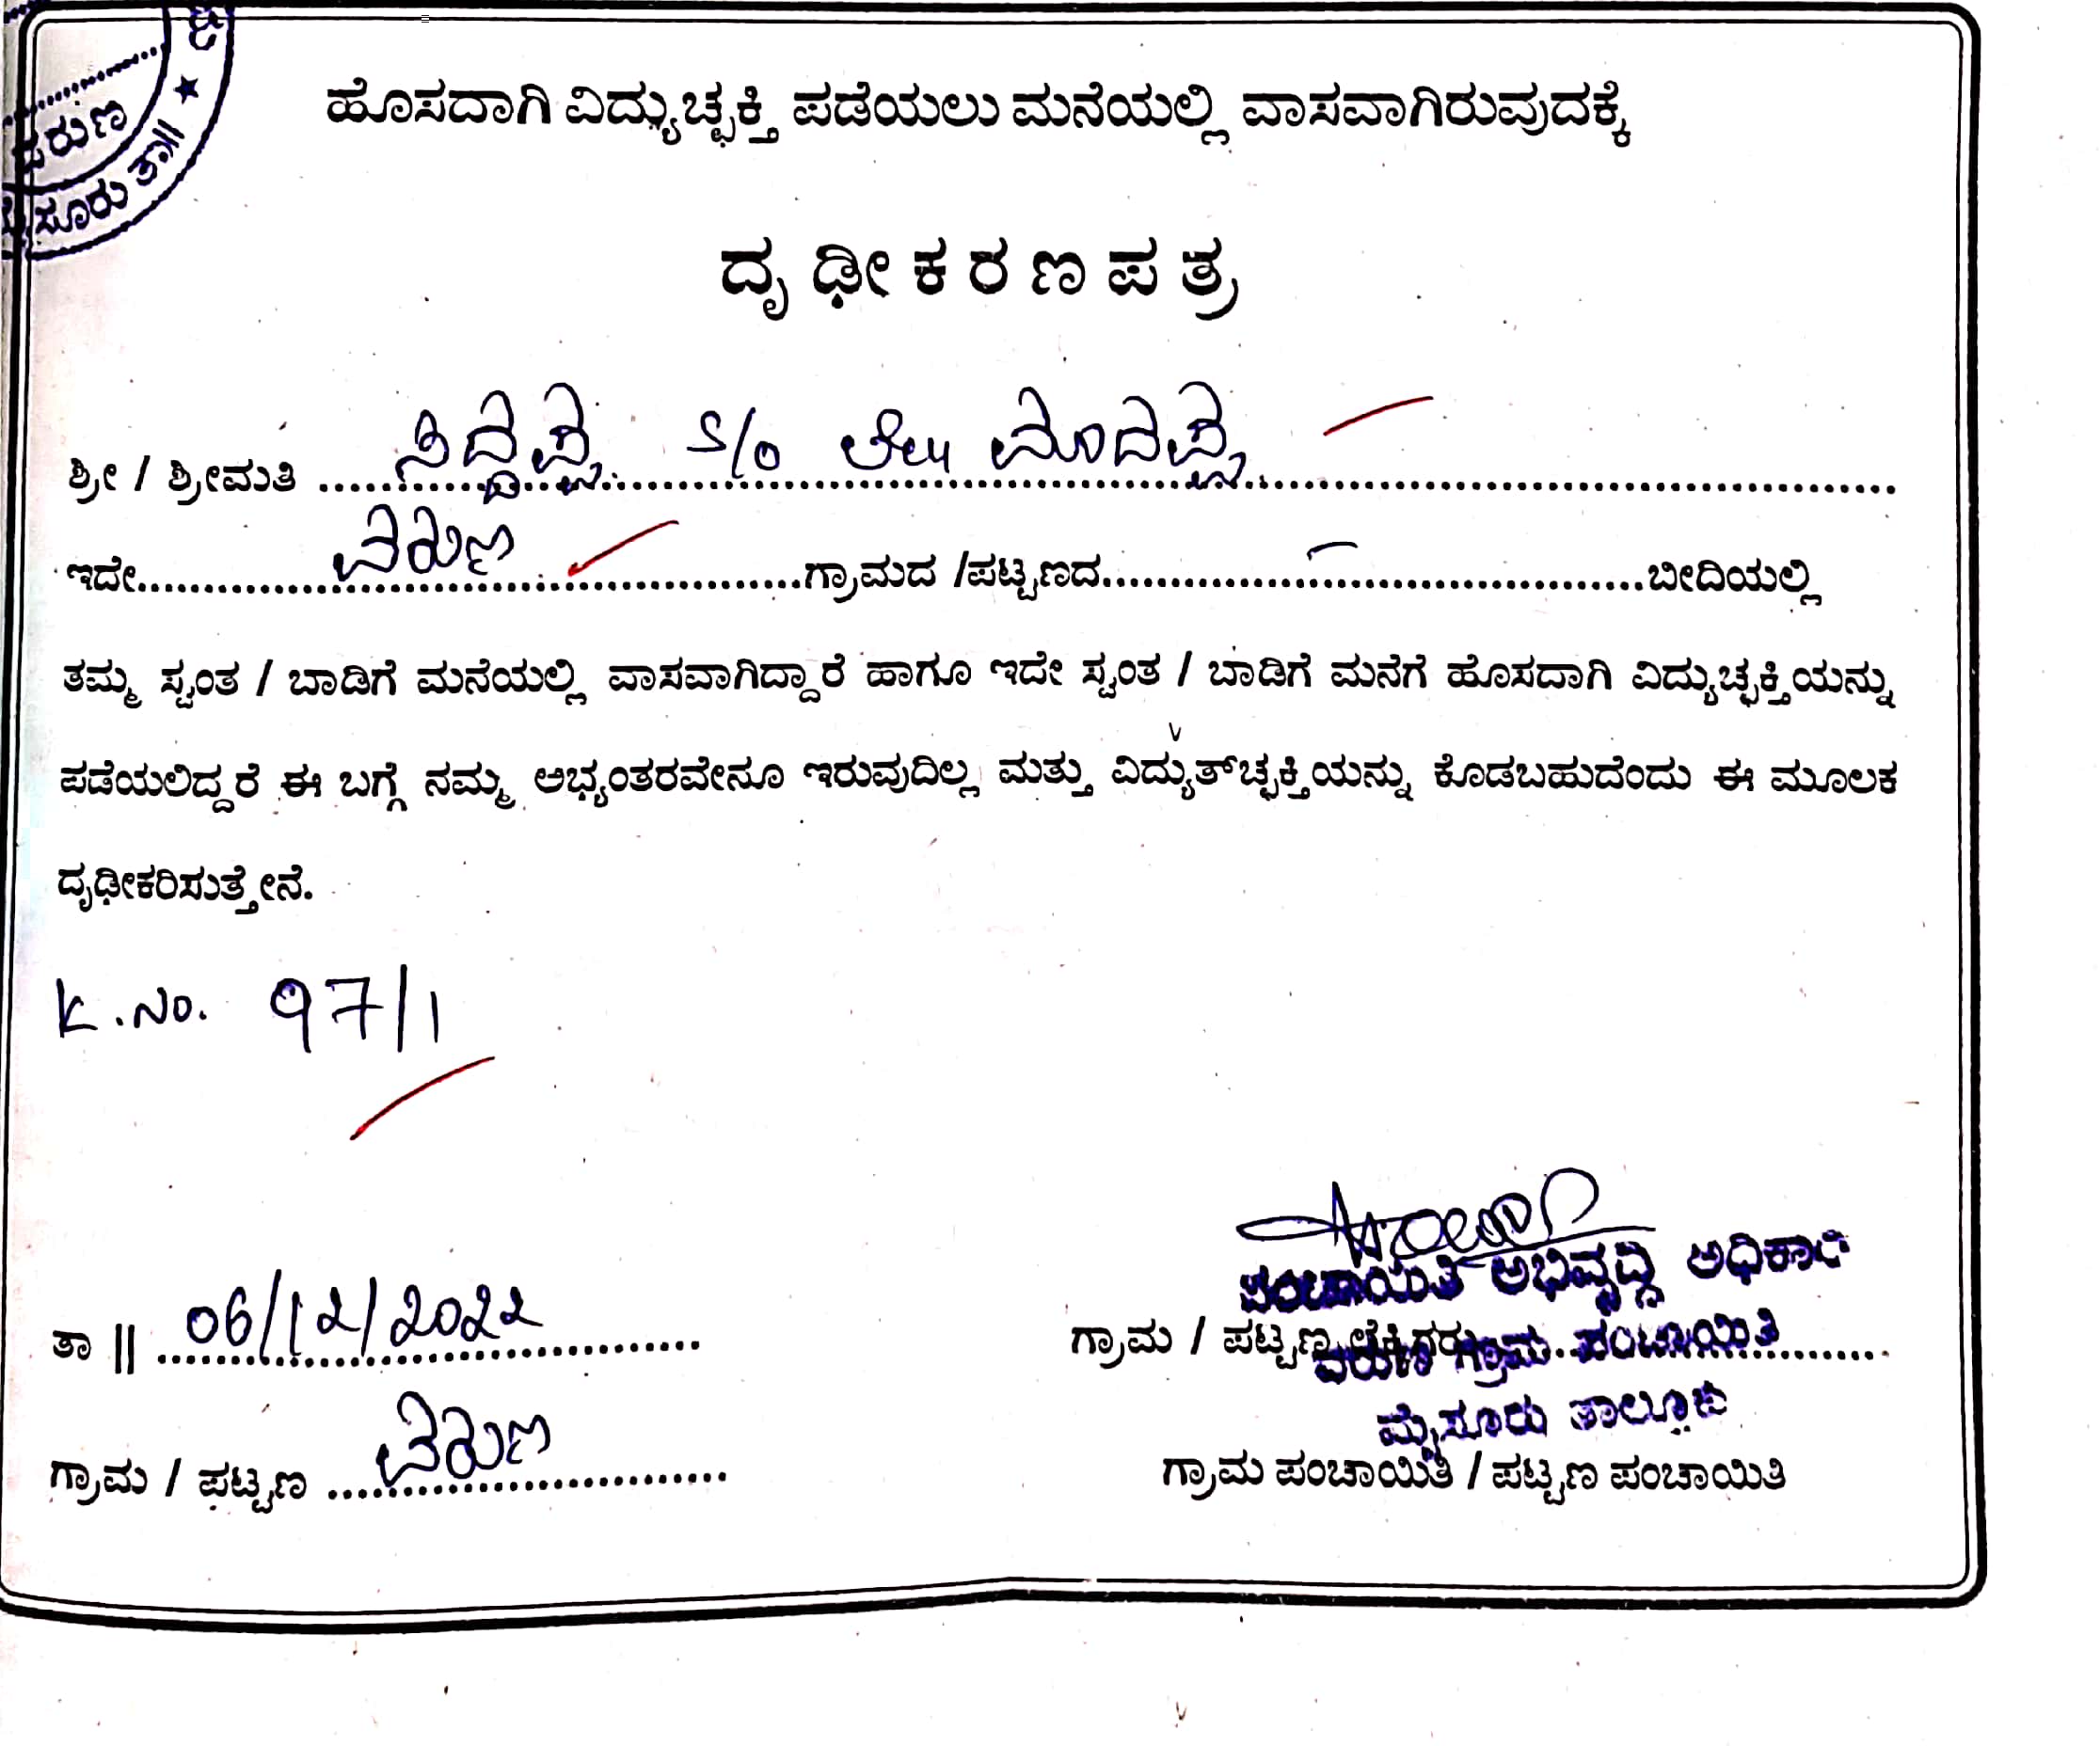 ವರುಣ
ಮೈಸೂರು ತಾ॥
ಹೊಸದಾಗಿ ವಿದ್ಯುಚ್ಛಕ್ತಿ ಪಡೆಯಲು ಮನೆಯಲ್ಲಿ ವಾಸವಾಗಿರುವುದಕ್ಕೆ
ದೃಢೀಕರಣಪತ್ರ
ಶ್ರೀ / ಶ್ರೀಮತಿ ಸಿದ್ದಪ್ಪ S/o ಲೇ॥ ಮಾದಪ್ಪ
ಇದೇ ವರುಣ ಗ್ರಾಮದ /ಪಟ್ಟಣದ ಬೀದಿಯಲ್ಲಿ
ತಮ್ಮ ಸ್ವಂತ / ಬಾಡಿಗೆ ಮನೆಯಲ್ಲಿ ವಾಸವಾಗಿದ್ದಾರೆ ಹಾಗೂ ಇದೇ ಸ್ವಂತ / ಬಾಡಿಗೆ ಮನೆಗೆ ಹೊಸದಾಗಿ ವಿದ್ಯುಚ್ಛಕ್ತಿಯನ್ನು
ಪಡೆಯಲಿದ್ದರೆ ಈ ಬಗ್ಗೆ ನಮ್ಮ ಅಭ್ಯಂತರವೇನೂ ಇರುವುದಿಲ್ಲ ಮತ್ತು ವಿದ್ಯುತ್‌ಚ್ಛಕ್ತಿಯನ್ನು ಕೊಡಬಹುದೆಂದು ಈ ಮೂಲಕ
ದೃಢೀಕರಿಸುತ್ತೇನೆ.
K.No. 97/1
ಪಂಚಾಯಿತಿ ಅಭಿವೃದ್ಧಿ ಅಧಿಕಾರಿ
ತಾ || 06/12/2022
ಗ್ರಾಮ / ಪಟ್ಟಣ ಲೆಕ್ಕಿಗರು
ವರುಣ ಗ್ರಾಮ ಪಂಚಾಯಿತಿ
ಮೈಸೂರು ತಾಲ್ಲೂಕು
ಗ್ರಾಮ / ಪಟ್ಟಣ ವರುಣ
ಗ್ರಾಮ ಪಂಚಾಯಿತಿ / ಪಟ್ಟಣ ಪಂಚಾಯಿತಿ